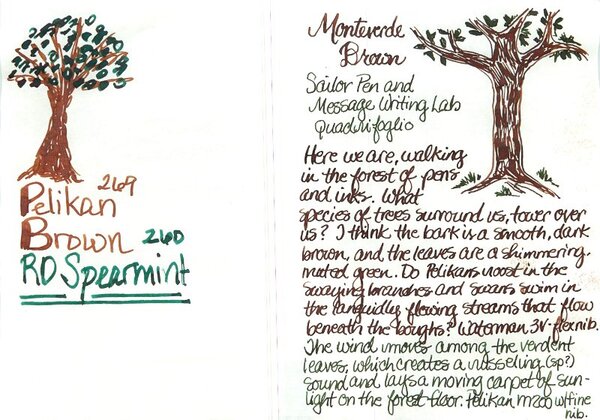 269
Pelikan
Brown 260
RO Spearmint
Monteverde
Brown
Sailor Pen and
Message Writing Lab
Quadrifoglio
Here we are, walking
in the forest of pens
and inks. What
species of trees surround us, tower over
us? I think the bark is a smooth, dark
brown, and the leaves are a shimmering
muted green. Do Pelikans roost in the
swaying branches and swans swim in
the languidly flowing streams that flow
beneath the boughs? Waterman 3V-flexnib.
The wind moves among the verdent
leaves, which creates a russeling (sp?)
sound and lays a moving carpet of sun-
light on the forest floor. Pelikan m200 w/fine
nib.